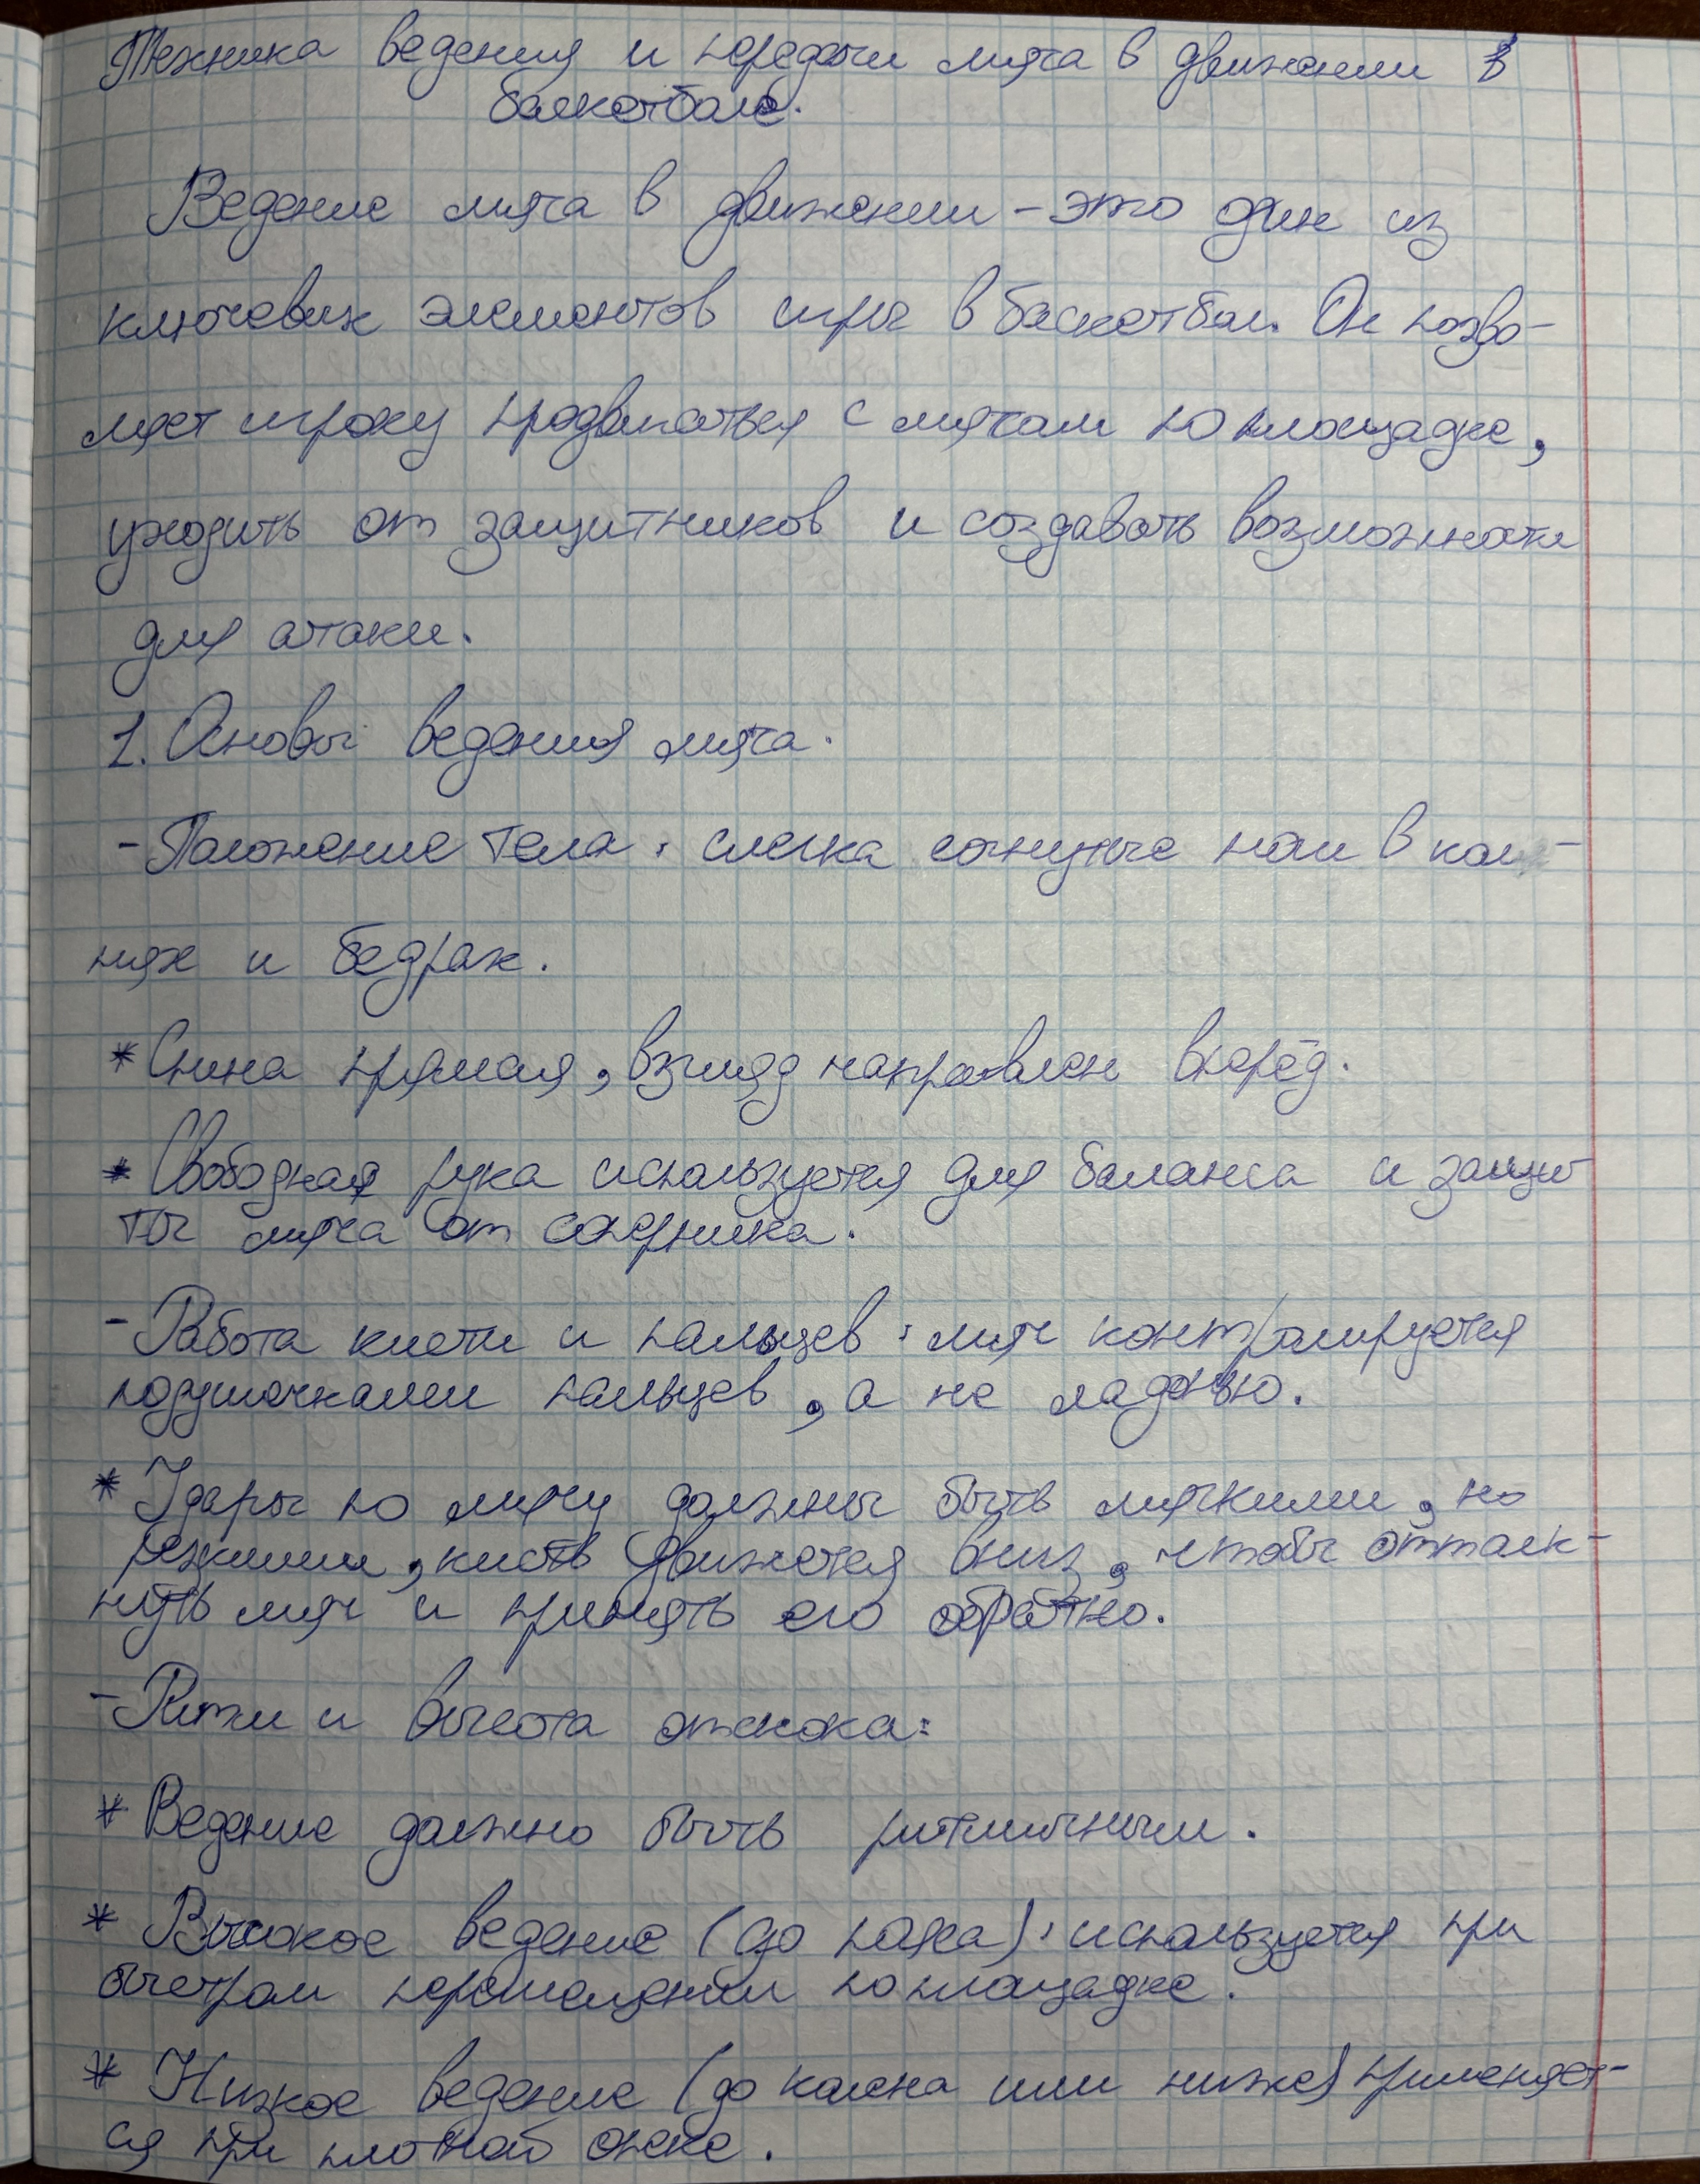 Техника ведения и передачи мяча в движении в
баскетболе.
Ведение мяча в движении - это один из
ключевых элементов игры в баскетбол. Он позво-
ляет игроку продвигаться с мячом по площадке,
уходить от защитников и создавать возможности
для атаки.
1. Основы ведения мяча.
- Положение тела: слегка согнутые ноги в коле-
нях и бедрах.
* Спина прямая, взгляд направлен вперёд.
* Свободная рука используется для баланса и защи
ты мяча от соперника.
- Работа кисти и пальцев: мяч контролируется
подушечками пальцев, а не ладонью.
* Удары по мячу должны быть мягкими, но
резкими, кисть движется вниз, чтобы оттолк-
нуть мяч и принять его обратно.
- Ритм и высота отскока:
* Ведение должно быть ритмичным.
* Высокое ведение (до пояса): используется при
быстром перемещении по площадке.
* Низкое ведение (до колена или ниже) применяет-
ся при плотной опеке.